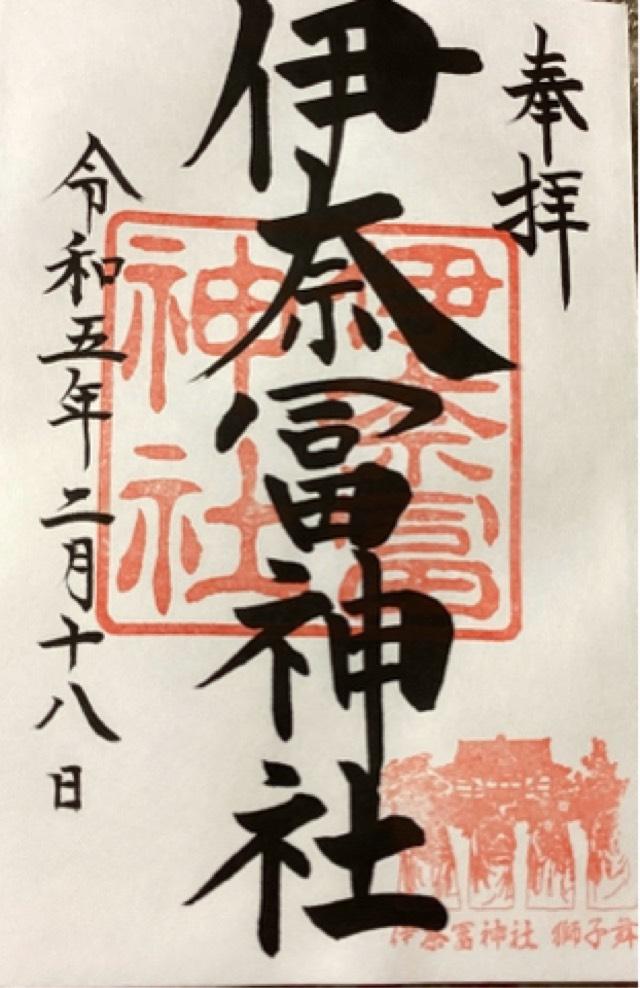 奉拝
伊奈冨神社
令和五年二月十八日
伊奈冨
神社
伊奈冨神社 獅子舞